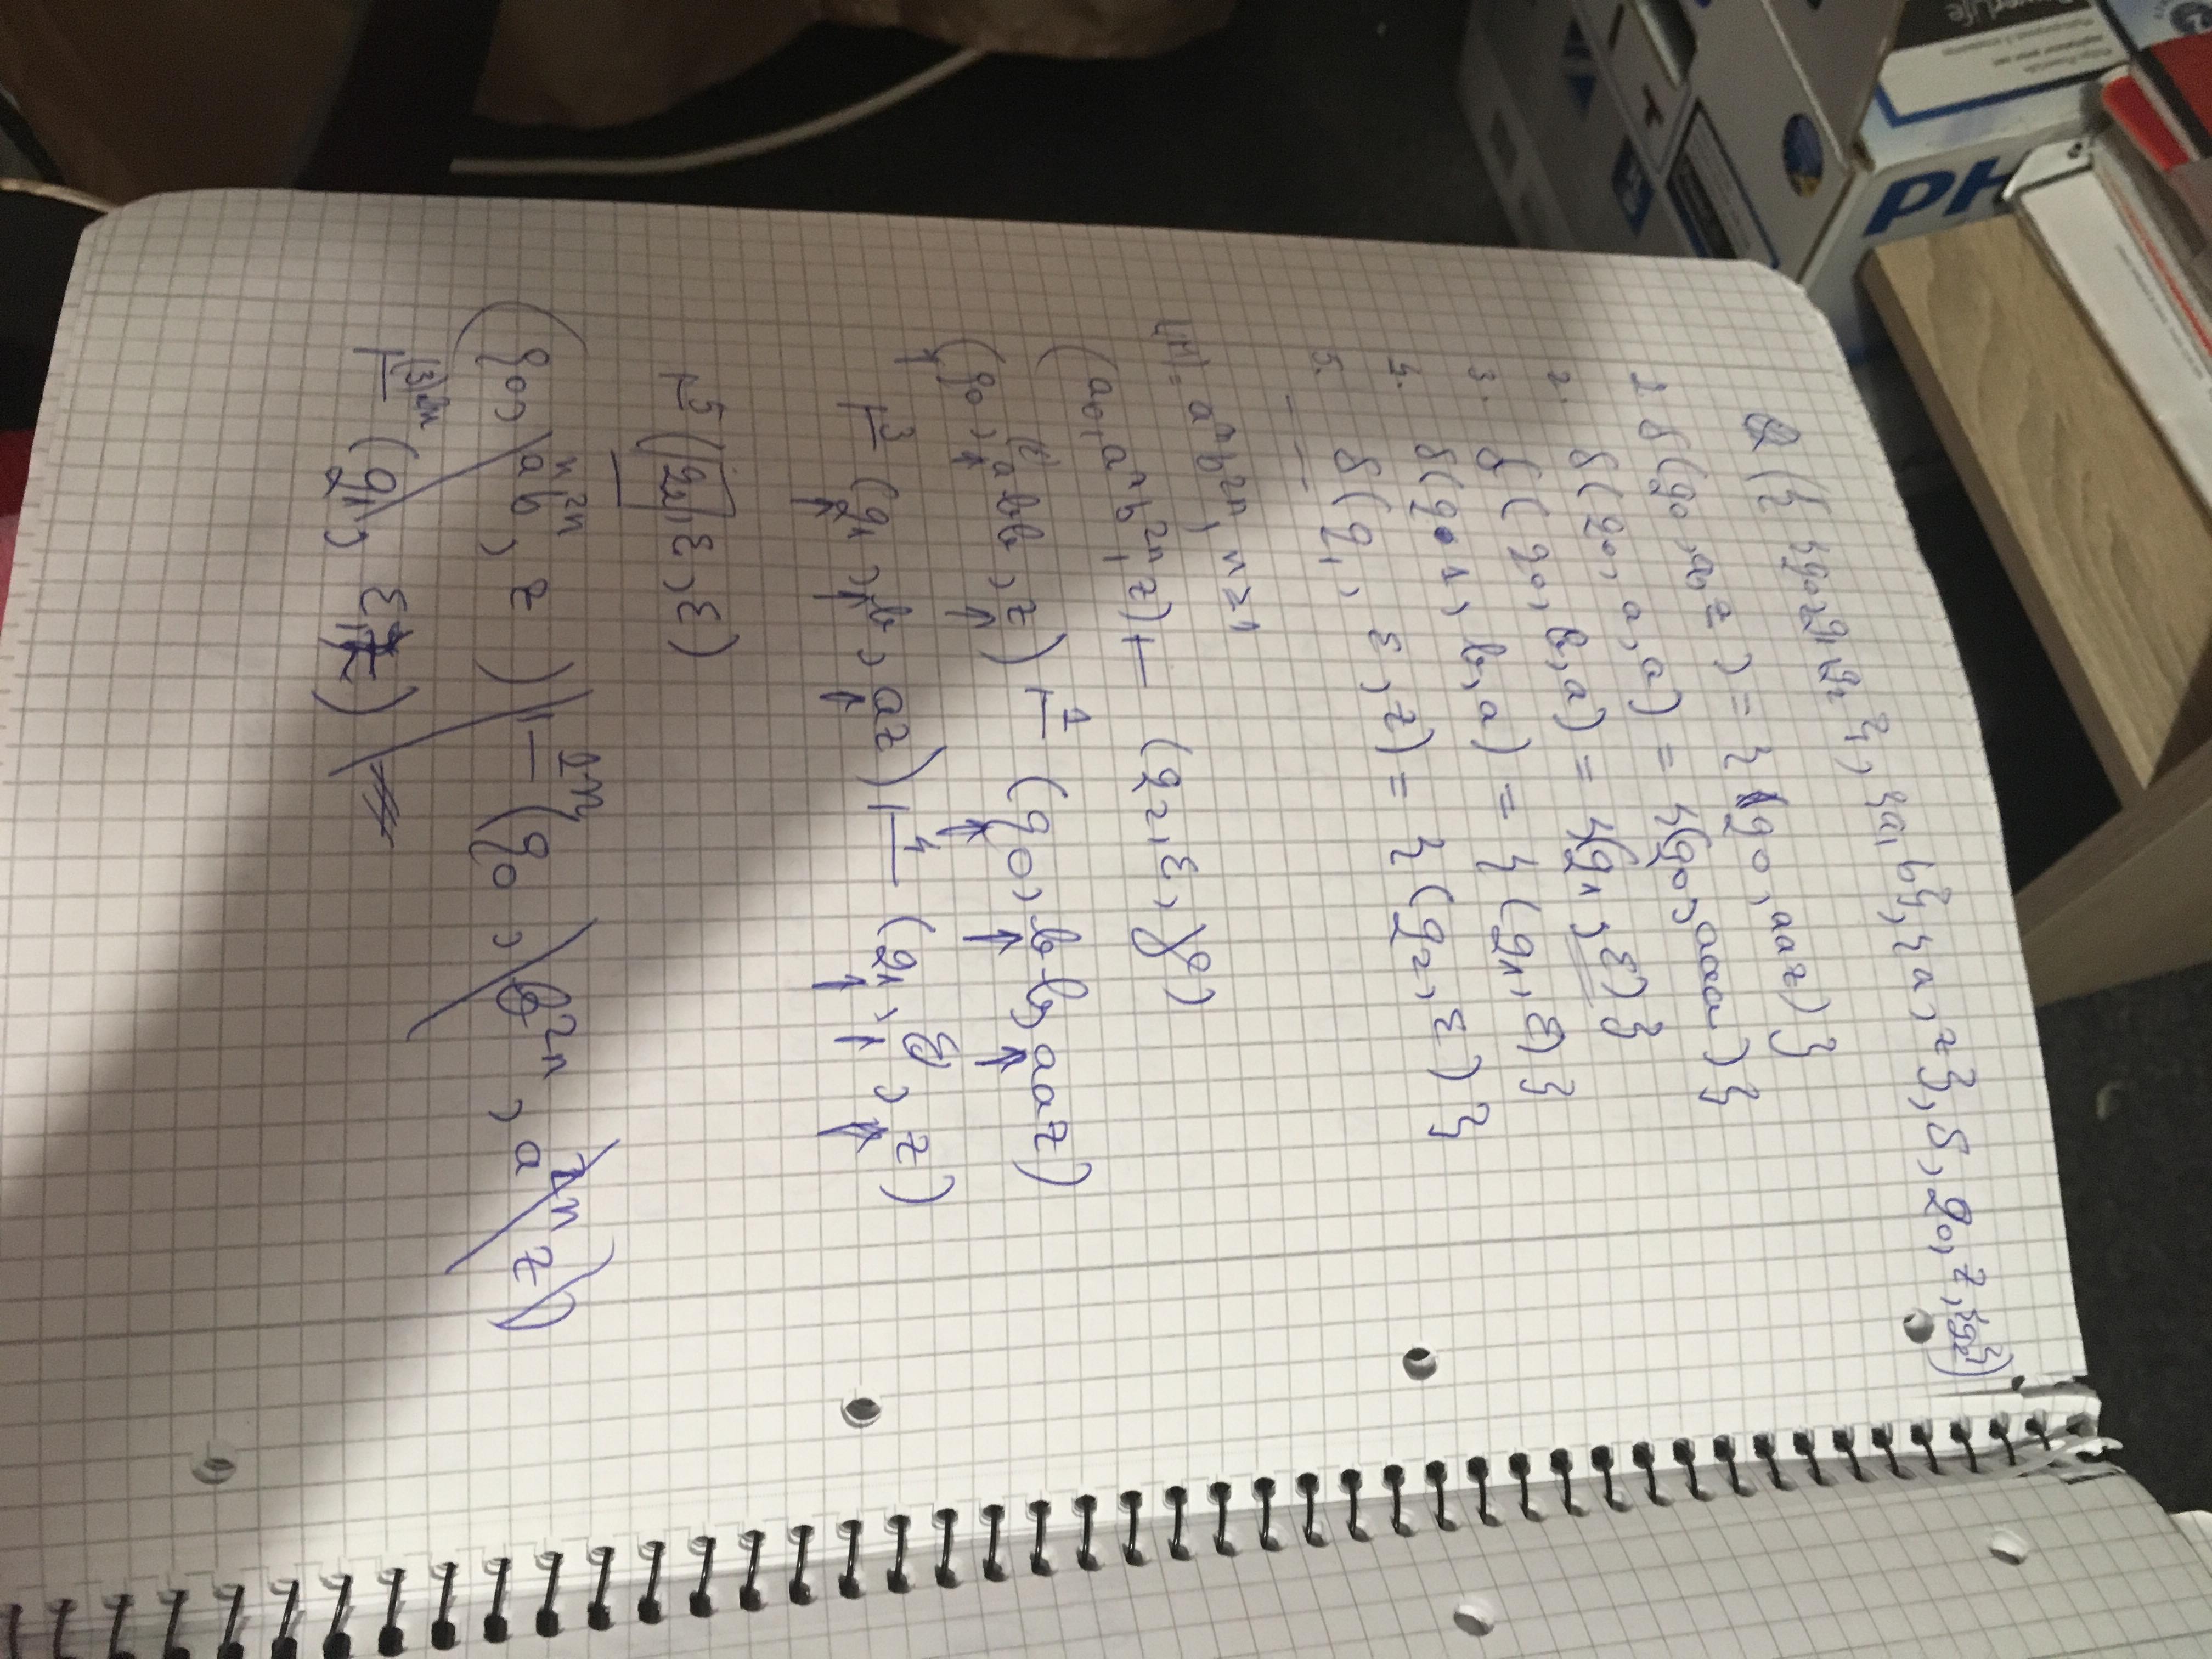 PH
Q ({ {q₀, q₁, q₂}, {a, b}, {a, z}, δ, q₀, z, {q₂})
1 δ(q₀, a, z) = {(q₀, aaz)}
2. δ(q₀, a, a) = {(q₀, aaa)}
3. δ(q₀, b, a) = {(q₁, ε)}
4. δ(q1, b, a) = {(q₁, ε)}
5. δ(q₁, ε, z) = {(q₂, ε)}
L(M) = aⁿb²ⁿ, n ≥ 1
(a₀, aⁿb²ⁿ, z) ⊢ (q₂, ε, γ)
(q₀, abb, z) ⊢¹ (q₀, bb, aaz)
⊢³ (q₁, b, az) ⊢⁴ (q₁, ε, z)
⊢⁵ (q₂, ε, ε)
(q₀, aⁿb²ⁿ, z) ⊢¹⁻ⁿ (q₀, b²ⁿ, a²ⁿz)
⊢⁽³⁾²ⁿ (q₁, ε, z)